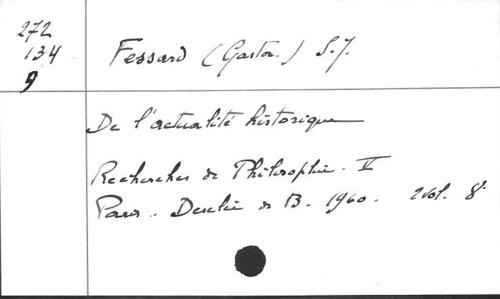 272
134
9
Fessard (Gaston.) S.J.
De l'actualité historique
Recherches de Philosophie. V
Paris. Desclée de B. 1960. 2 vol. 8°